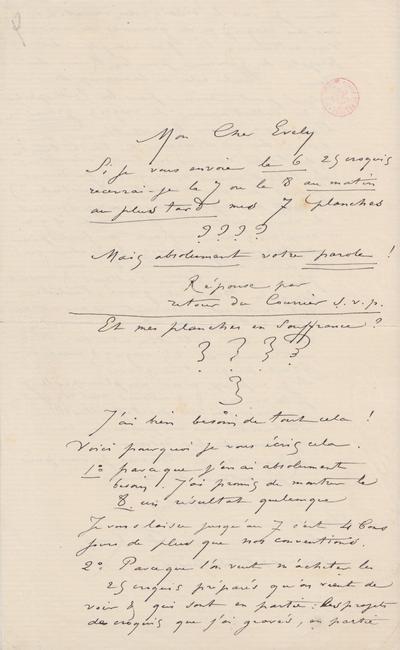 Mon Cher Evely
Si je vous envoie le 6 25 croquis
recevrai-je le 7 ou le 8 au matin
au plus tard mes 7 planches
? ? ? ?
Mais absolument votre parole !
Réponse par
retour du Courrier s.v.p.
Et mes planches en souffrance ?
? ? ? ?
?
J'ai bien besoin de tout cela !
Voici pourquoi je vous écris cela.
1° parce que j'en ai absolument
besoin. J'ai promis de montrer le
8 un résultat quelconque
Je vous laisse jusqu'au 7 c'est 4 bons
jours de plus que nos conventions
2° Parce que l'on veut m'acheter les
25 croquis préparés qu'on vient de
voir & qui sont en partie : les projets
de croquis que j'ai gravés, en partie